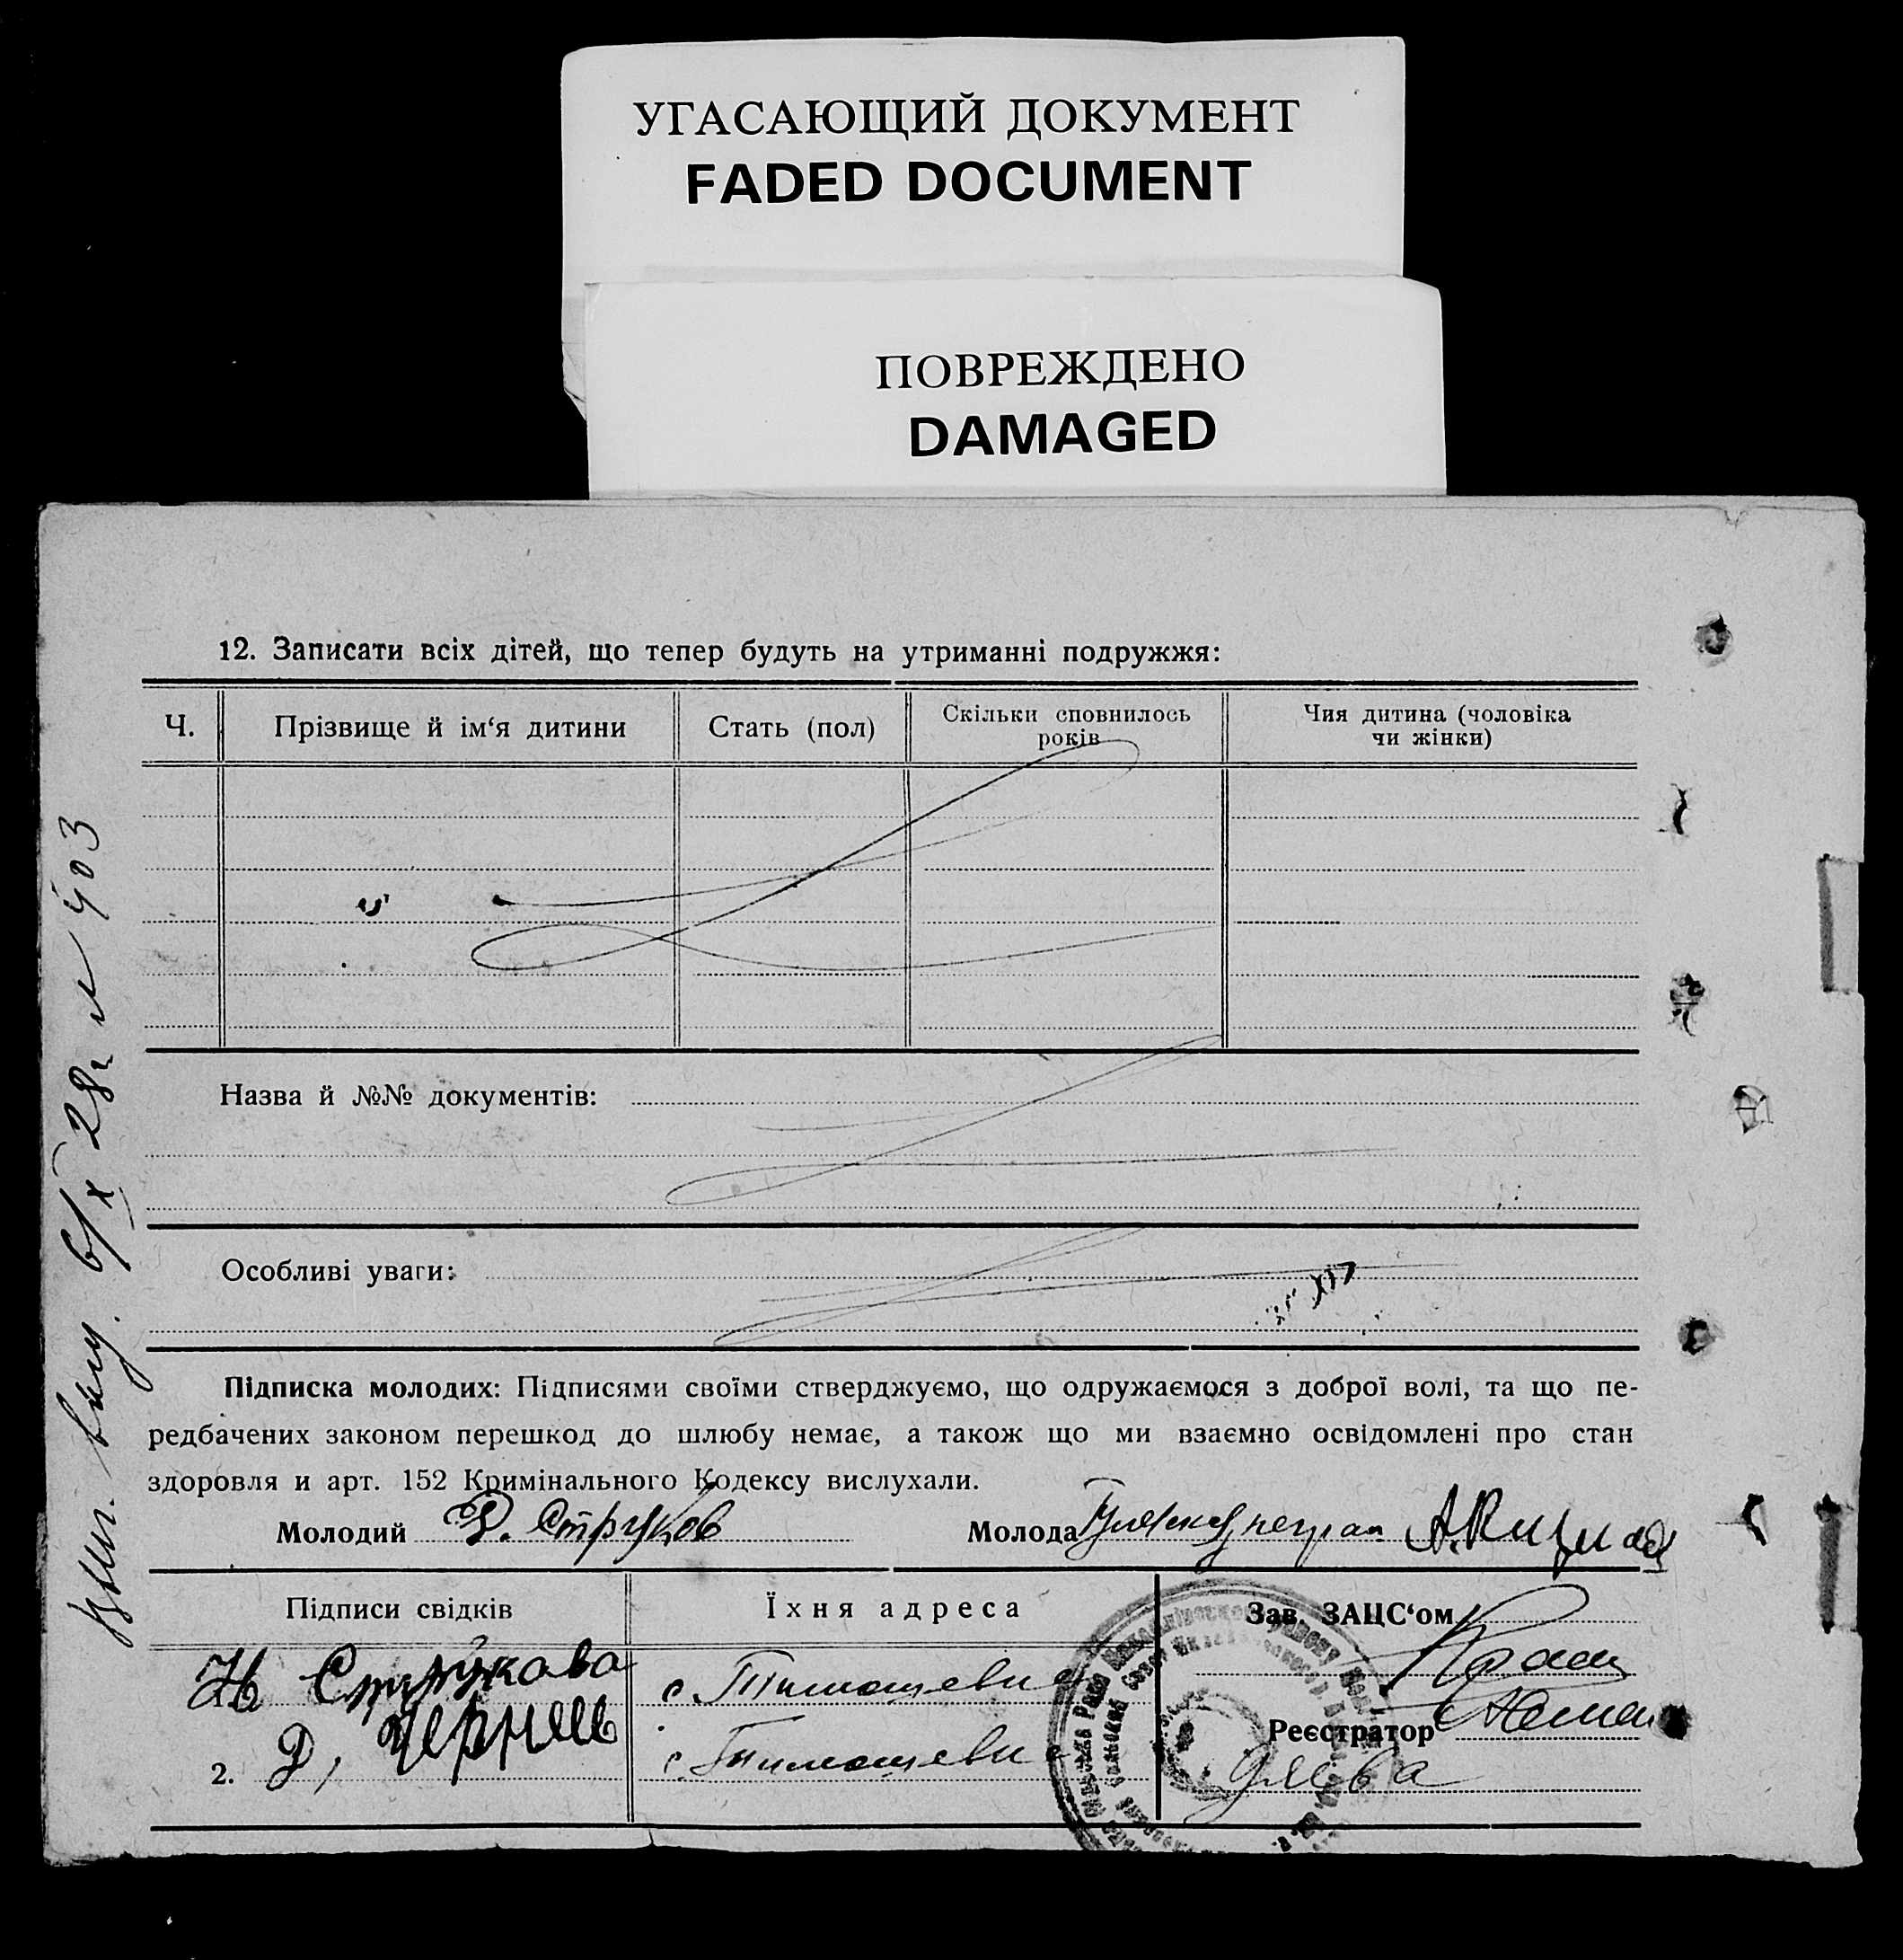 УГАСАЮЩИЙ ДОКУМЕНТ
FADED DOCUMENT
ПОВРЕЖДЕНО
DAMAGED
12. Записати всіх дітей, що тепер будуть на утриманні подружжя:
Ч. Прізвище й ім‘я дитини Стать (пол) Скільки сповнилось років Чия дитина (чоловіка чи жінки)
Назва й №№ документів:
Особливі уваги:
Підписка молодих: Підписями своїми стверджуємо, що одружаємося з доброї волі, та що пе-
редбачених законом перешкод до шлюбу немає, а також що ми взаємно освідомлені про стан
здоровля и арт. 152 Кримінального Кодексу вислухали.
Молодий Струков Молода
Підписи свідків Їхня адреса Зав. ЗАЦС‘ом
Струкова с. Тимошевка
Реєстратор
2. Д, с. Тимошевка
6/X 28 г № 403